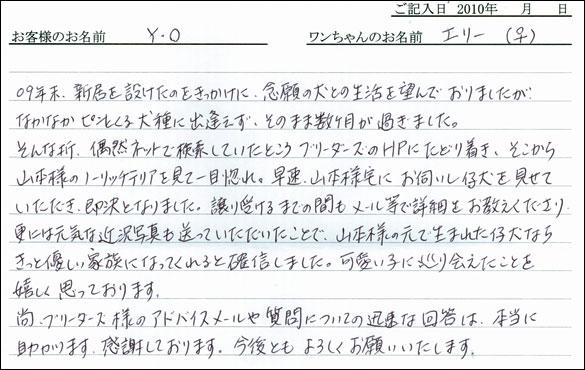 ご記入日 2010年 月 日
お客様のお名前 Y.O ワンちゃんのお名前 エリー (♀)
09年末、新居を設けたのをきっかけに、念願の犬との生活を望んでおりましたが
なかなかピンとくる犬種に出逢えず、そのまま数ヶ月が過ぎました。
そんな折、偶然ネットで検索していたところブリーダーズのHPにたどり着き、そこから
山本様のノーリッチテリアを見て一目惚れ。早速、山本様宅にお伺いし仔犬を見せて
いただき、即決となりました。譲り受けるまでの間もメール等で詳細をお教えくださり、
更には元気な近況写真も送っていただいたことで、山本様の元で生まれた仔犬なら
きっと優しい家族になってくれると確信しました。可愛い子に巡り会えたことを
嬉しく思っております。
尚、ブリーダーズ様のアドバイスメールや質問についての迅速な回答は、本当に
助かります。感謝しております。今後ともよろしくお願いいたします。